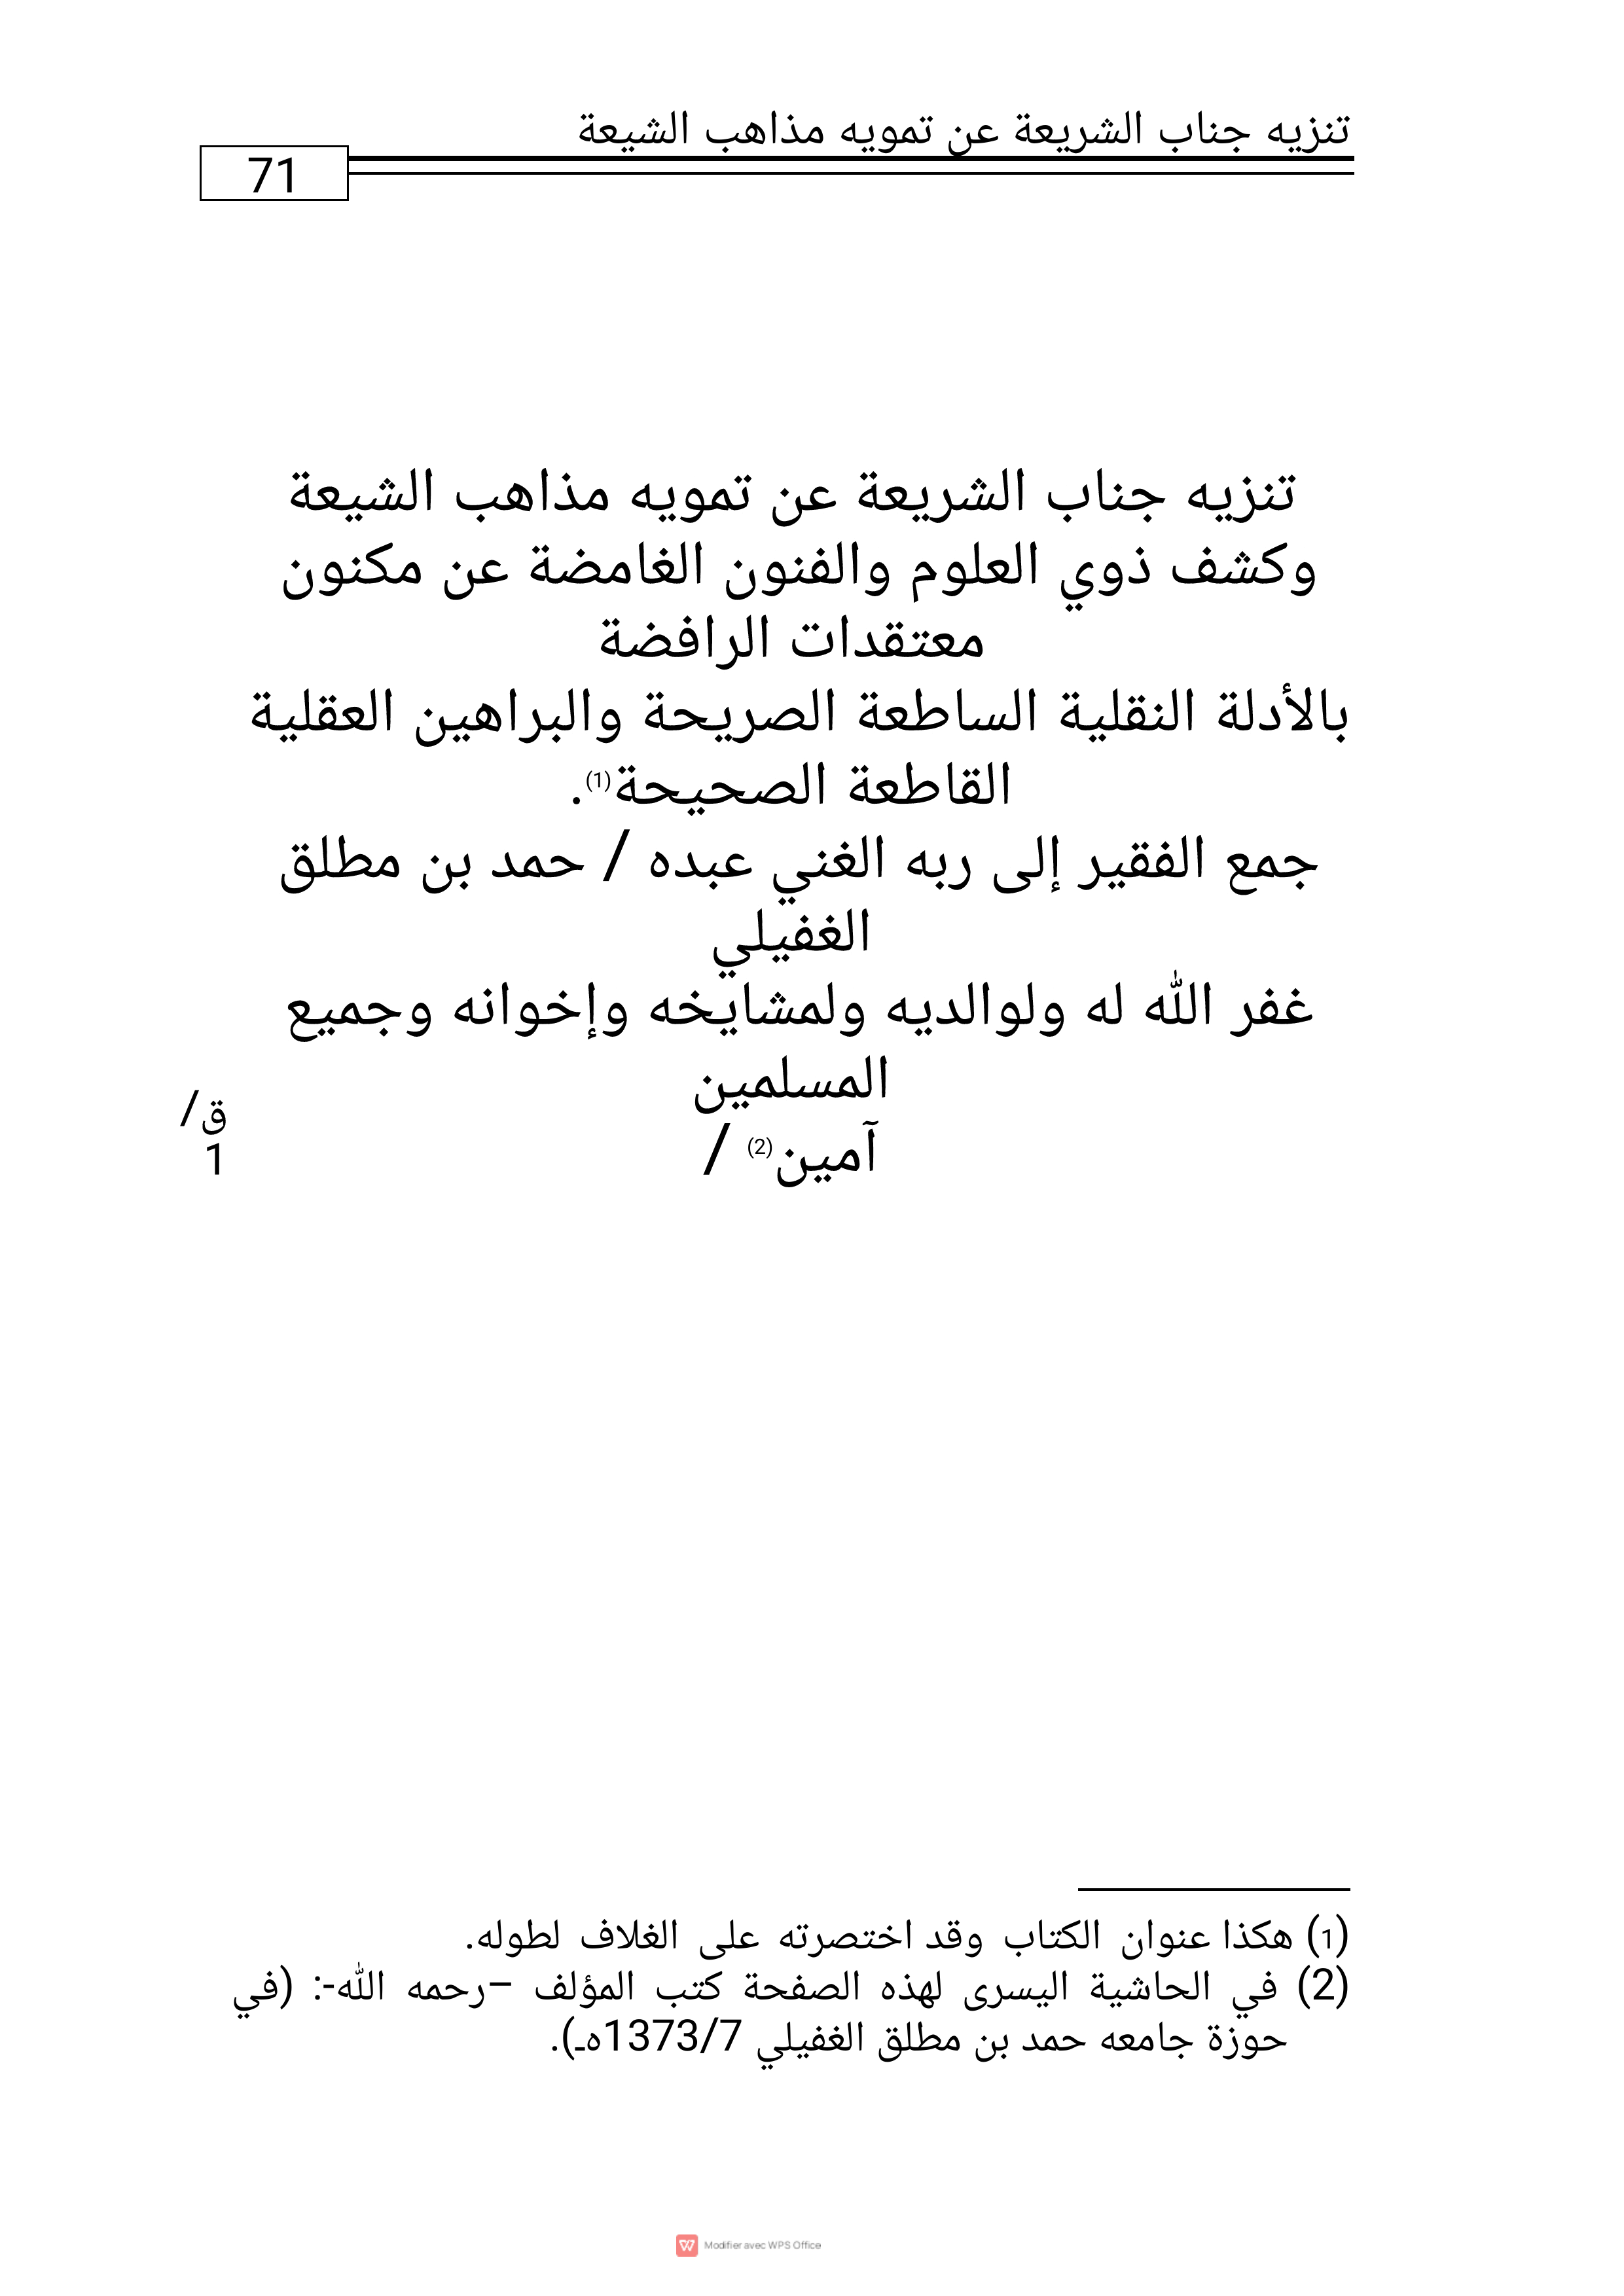 تنزيه جناب الشريعة عن تمويه مذاهب الشيعة
71
تنزيه جناب الشريعة عن تمويه مذاهب الشيعة
وكشف ذوي العلوم والفنون الغامضة عن مكنون
معتقدات الرافضة
بالأدلة النقلية الساطعة الصريحة والبراهين العقلية
القاطعة الصحيحة(1).
جمع الفقير إلى ربه الغني عبده / حمد بن مطلق
الغفيلي
غفر الله له ولوالديه ولمشايخه وإخوانه وجميع
المسلمين
آمين(2) /
ق/
1
(1) هكذا عنوان الكتاب وقد اختصرته على الغلاف لطوله.
(2) في الحاشية اليسرى لهذه الصفحة كتب المؤلف –رحمه الله-: (في
حوزة جامعه حمد بن مطلق الغفيلي 1373/7هـ).
Modifier avec WPS Office